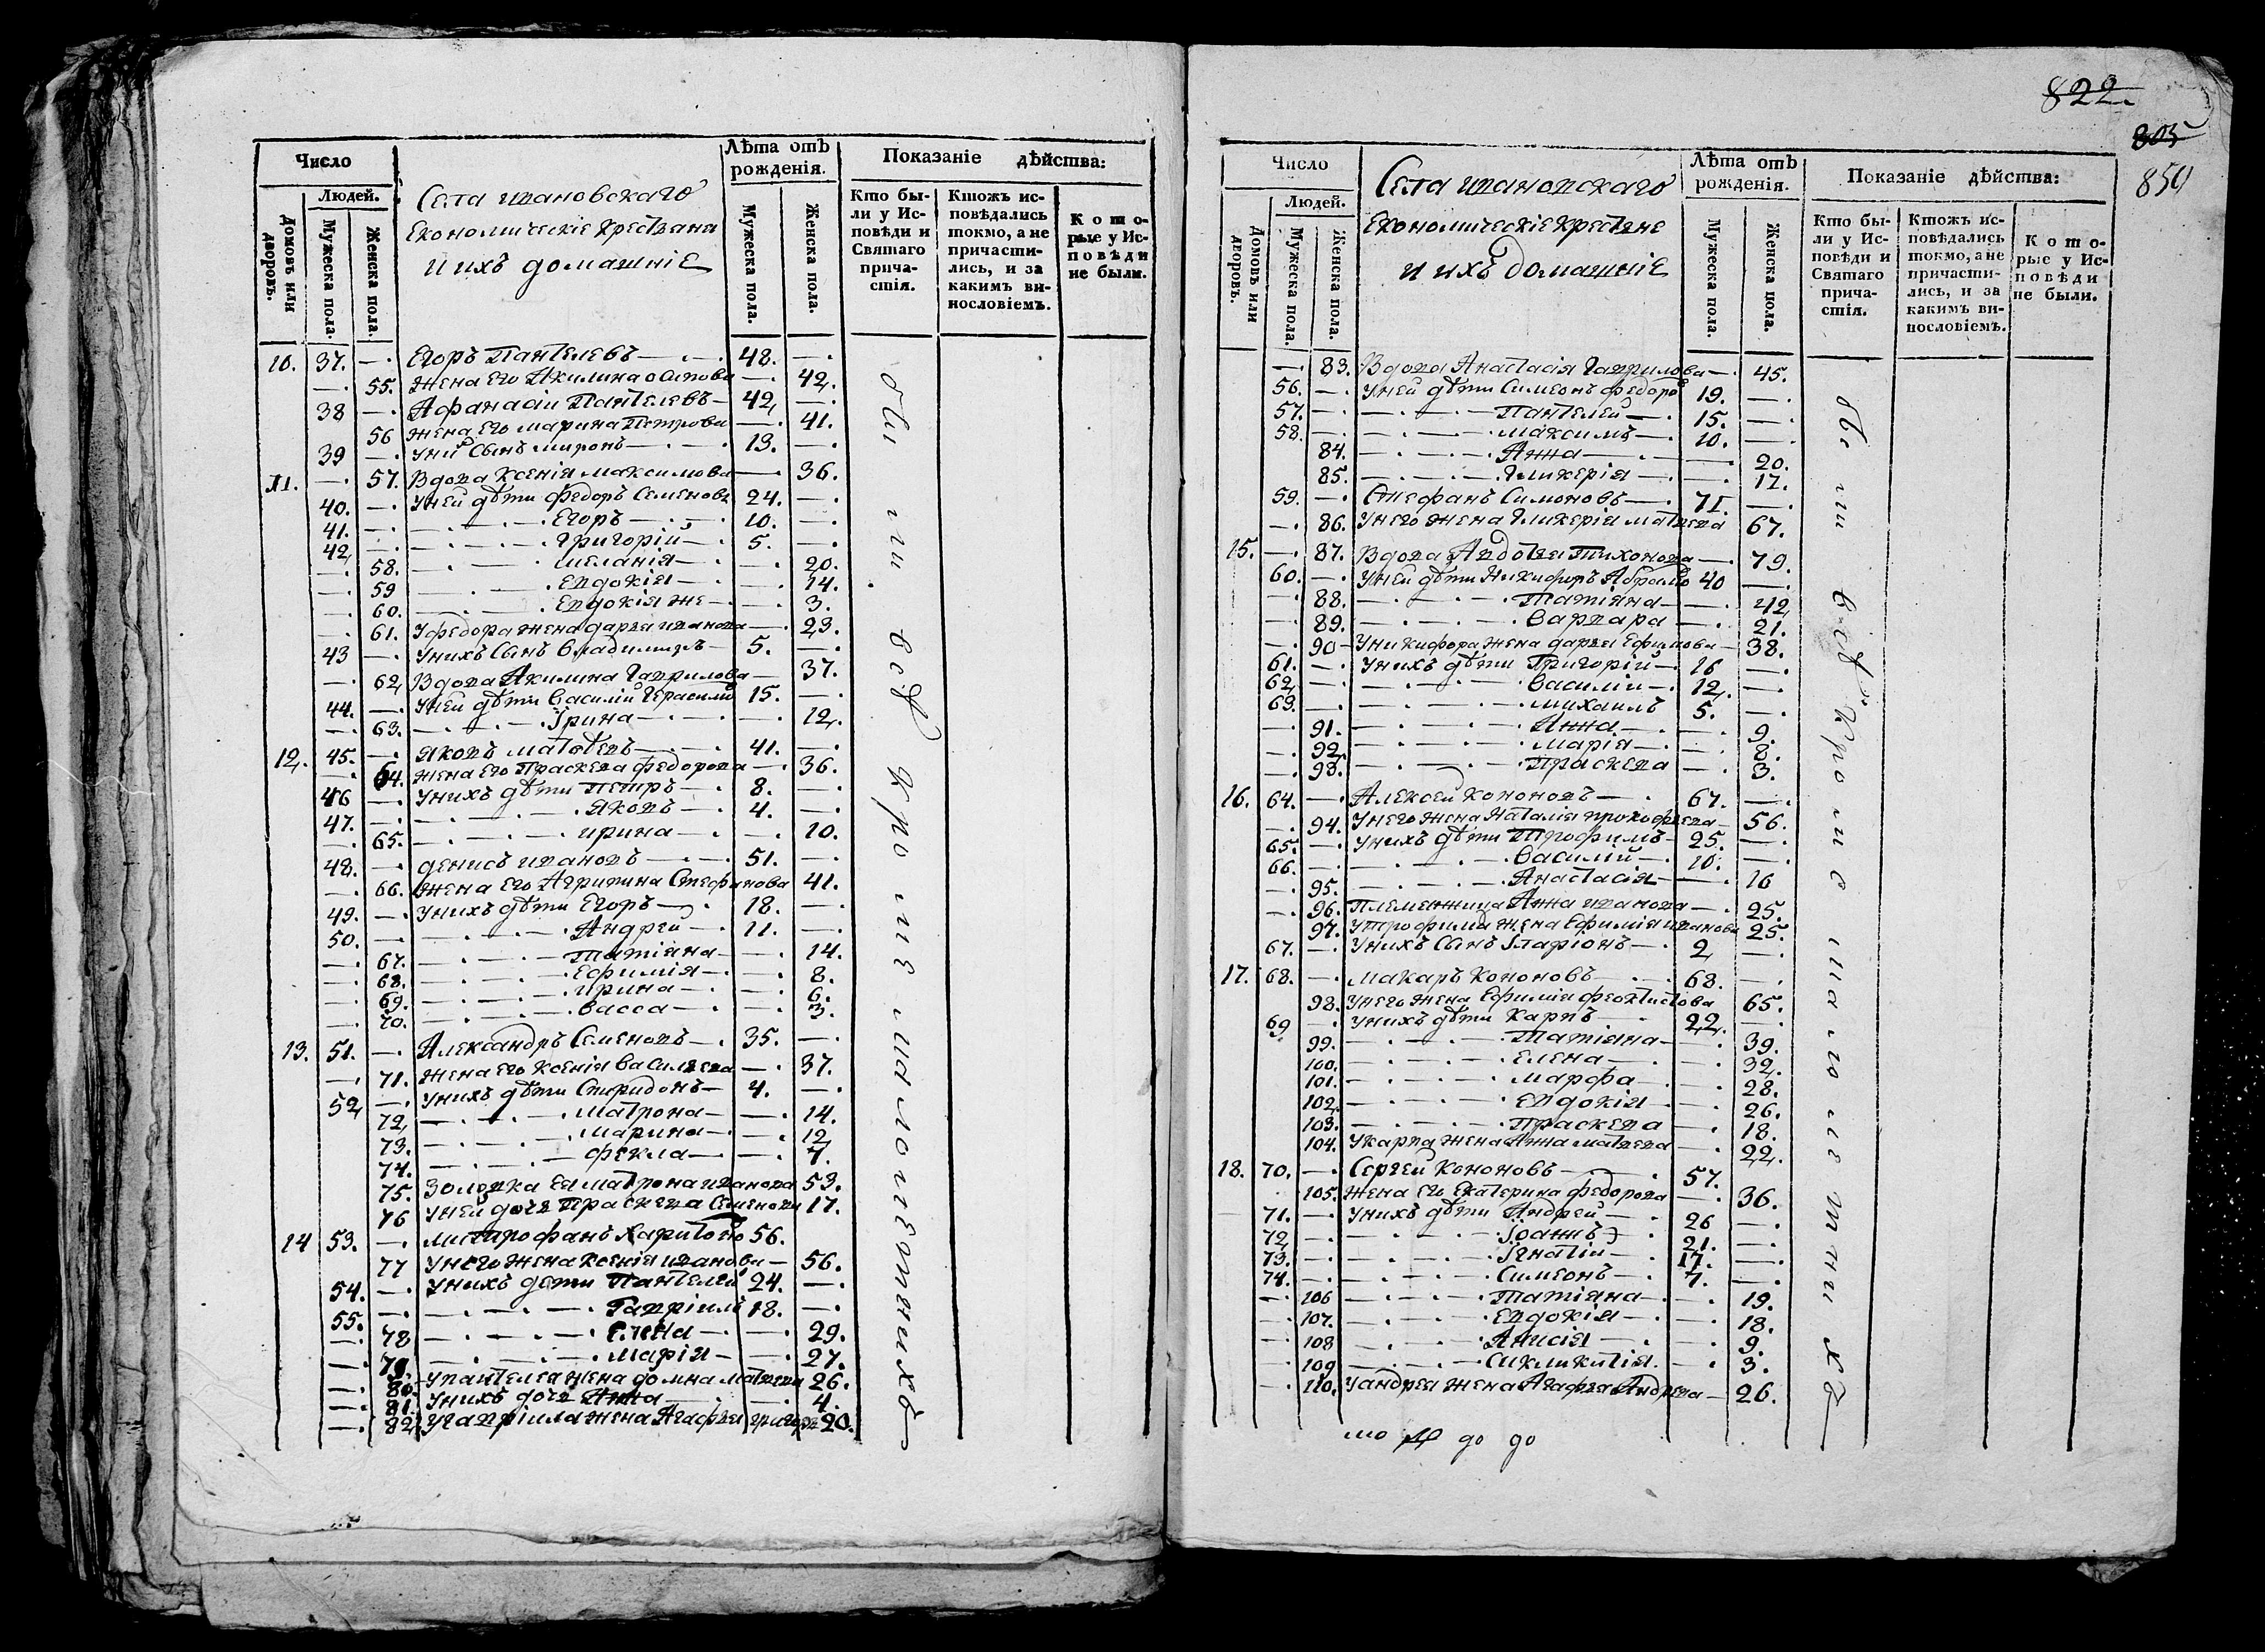 Число
Людей.
Домовъ или дворовъ.
Мужеска пола.
Женска пола.
Села ивановскаго
Економическіе крестьяна
и ихъ домашніе
Лѣта отъ рожденія.
Мужеска пола.
Женска пола.
Показаніе дѣйства:
Кто были у Исповѣди и Святаго причастія.
Ктожъ исповѣдались токмо, а не причастились, и за какимъ винословіемъ.
Которые у Исповѣди не были.
10. 37. —. Егоръ Пантелевъ —. 48. —.
—. 55. Жена его Акилина осипова —. 42.
38 —. Афанасіи Пантелевъ — 42. —.
56 жена его марина Петрова —. 41.
39 —. Уних сынъ миронъ —. 13. —.
11. —. 57. Вдова Ксенія максимова —. 36.
40. —. Уней дѣти федоръ Семеновъ 24. —.
41. —. —. Егоръ —. 10. —.
42. —. —. григорій —. 5. —.
—. 58. —. меланія —. —. 20.
—. 59 —. Евдокія —. —. 14.
—. 60. —. Евдокія же —. —. 3.
—. 61. Уфедора жена дарья иванова —. 23.
43 —. Унихъ сынъ владимиръ — 5. —.
—. 62. Вдова Акилина Гаврилова — 37.
44. —. Уней дѣти василій Герасимо 15. —.
—. 63. —. Ірина —. —. 12.
12. 45. —. яковъ матвѣевъ —. 41. —.
—. 64. жена его Праскева федорова —. 36.
46 —. Унихъ дѣти Петръ —. 8. —.
47. —. —. яковъ —. 4. —.
—. 65. —. ирина —. —. 10.
48. —. денисъ ивановъ —. 51. —.
—. 66. жена его Агрипина Стефанова 41.
49. —. Унихъ дѣти Егоръ —. 18. —.
50. —. —. Андрей —. 11. —.
—. 67. —. Татіяна —. 14.
—. 68. —. Ефимія —. —. 8.
—. 69. —. ирина —. —. 6.
—. 70. —. васса —. —. 3.
13. 51. —. Александръ Семеновъ —. 35. —.
—. 71. жена его Ксенія васильева —. 37.
52 —. Унихъ дѣти Спиридонъ — 4. —.
72. —. матрона — —. 14.
73. —. марина —. —. 12
74. —. фекла — —. 7.
75. Золовка ея матрона иванова 53.
76 Уней дочь Праскева Семенова 17.
14 53. —. митрофанъ Харитоно 56.
77 Унего жена ксенія иванова — 56.
54. —. Унихъ дети Пантелей 24. —.
55. —. —. Гавріилъ 18. —.
—. 78 —. Елена —. —. 29.
—. 79. —. марія — —. 27.
—. 80. Упантелея жена домна матвева 26.
—. 81. Унихъ дочь Анна —. 4.
—. 82. Угавріила жена Агафья григорь 20.
были всѣ кромѣ малолетнихъ
822.
805
850
Число
Людей.
Домовъ или дворовъ.
Мужеска пола.
Женска пола.
Села ивановскаго
Економическіе крестяне
и ихъ домашніе
Лѣта отъ рожденія.
Мужеска пола.
Женска пола.
Показаніе дѣйства:
Кто были у Исповѣди и Святаго причастія.
Ктожъ исповѣдались токмо, а не причастились, и за какимъ винословіемъ.
Которые у Исповѣди не были.
—. 83. Вдова Анастасія Гаврилова —. 45.
56. —. Уней дѣти Симеонъ федоро 19. —.
57. —. —. Пантелей —. 15. —.
58. —. —. максимъ —. 10. —.
84. —. Анна —. —. 20.
85. —. Гликерія —. —. 17.
59. —. Стефанъ Симоновъ —. 71. —.
—. 86. Унего жена Гликерія матвева 67.
15. —. 87. Вдова Авдотья тихонова —. 79.
60. —. Уней дѣти Никифоръ Абрамо 40 —.
—. 88. —. Татіяна —. 42
—. 89. —. Варвара —. 21.
—. 90 Уникифора жена дарья Ефимова — 38.
61. —. Унихъ дѣти Григорій —. 16 —.
62. —. —. василій —. 12. —.
63. —. —. михаилъ 5. —.
—. 91. —. Анна —. —. 9.
—. 92. —. марія —. —. 8.
—. 93. —. Праскева —. 3.
16. 64. —. Алексеи кононовъ —. 67. —.
—. 94. Унего жена Наталія прокофьева — 56.
65. —. Унихъ дѣти Трофимъ — 25. —.
66. —. —. василій —. 10. —.
—. 95. —. Анастасія —. 16
—. 96. Племенница Анна иванова —. 25.
97. Утрофима жена Ефимія иванова 25.
67. —. Унихъ сынъ Іларіонъ —. 2 —.
17. 68. —. макаръ кононовъ —. 68. —.
98. Унего жена Ефимія феоктистова 65.
69 —. Унихъ дѣти Карпъ — 22. —.
99. —. Татіяна —. 39.
100. —. Елена —. —. 32.
101. —. марфа —. —. 28.
102. —. Евдокія —. —. 26.
103. —. Праскева —. 18.
104. Укарпа жена Анна матвева —. 22.
18. 70. —. Сергеи кононовъ —. 57.
105. жена его Екатерина федорова —. 36.
71. —. Унихъ дѣти Андрей —. 26 —.
72. —. —. Іоаннъ —. 21. —.
73. —. —. Ігнатіи —. 17. —.
74. —. —. Симеонъ —. 7. —.
—. 106 —. Татіяна —. —. 19.
—. 107. —. Евдокія —. —. 18.
—. 108 —. Анисія —. —. 9.
—. 109 —. Сикликитія. —. 3.
—. 110. Уандрея жена Агафья Андрева — 26.
были всѣ кромѣ малолетнихъ
до до